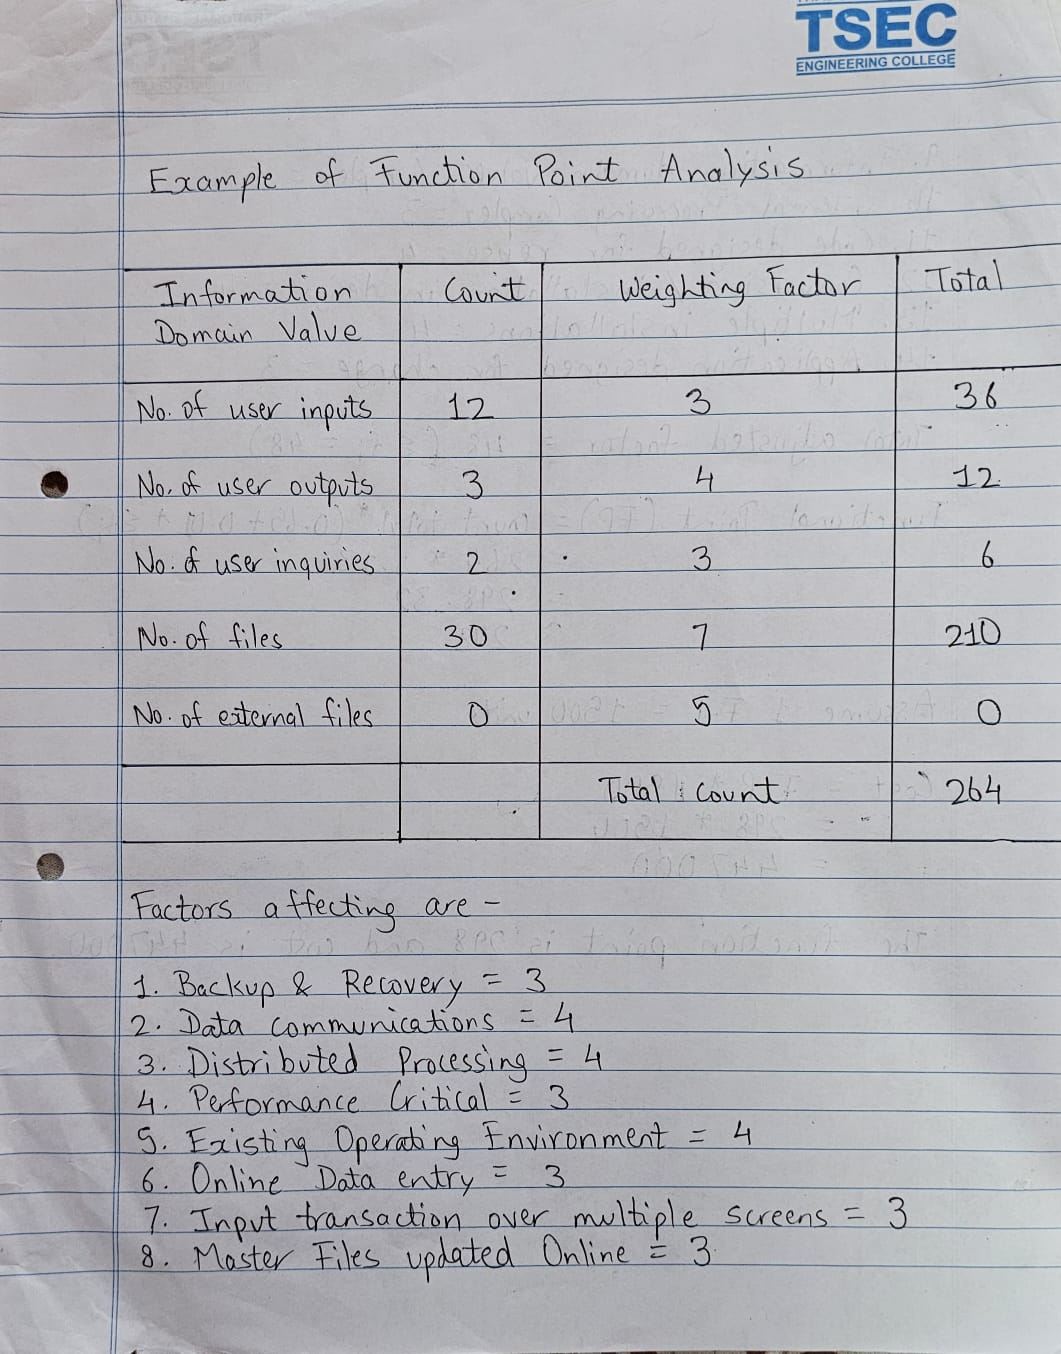 TSEC
ENGINEERING COLLEGE
Example of Function Point Analysis
Information Domain Value Count Weighting Factor Total
No. of user inputs 12 3 36
No. of user outputs 3 4 12
No. of user inquiries 2 3 6
No. of files 30 7 210
No. of external files 0 5 0
Total count 264
Factors affecting are -
1. Backup & Recovery = 3
2. Data communications = 4
3. Distributed Processing = 4
4. Performance Critical = 3
5. Existing Operating Environment = 4
6. Online Data entry = 3
7. Input transaction over multiple screens = 3
8. Master Files updated Online = 3